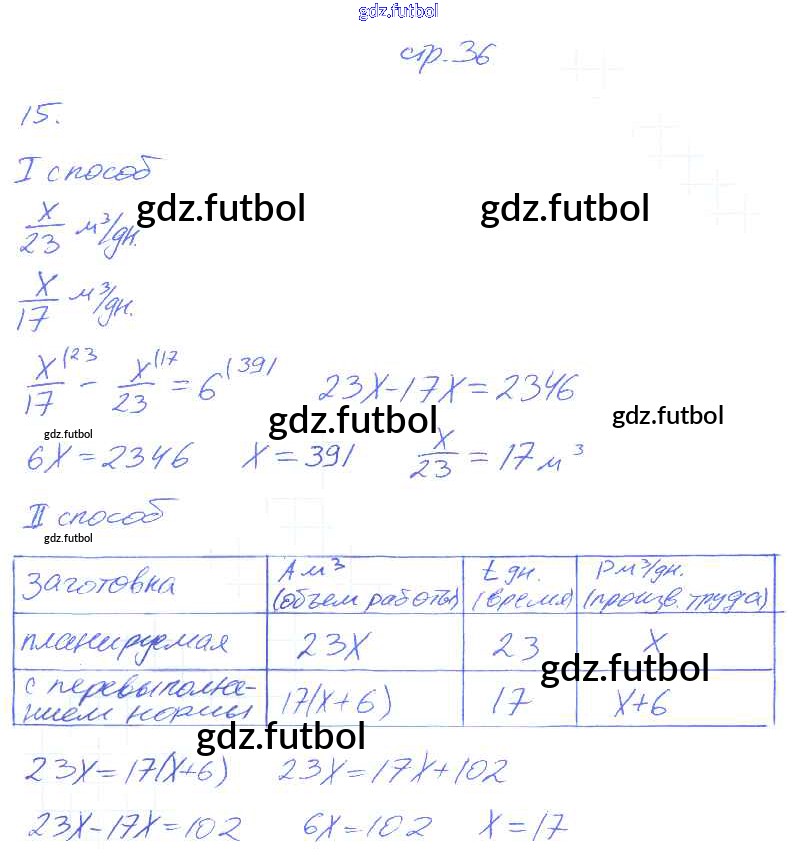 gdz.futbol
стр. 36
15.
I способ
x/23 м³/дн.
gdz.futbol gdz.futbol
x/17 м³/дн.
x/17 (23 - x/23 (17 = 6 (391 23x-17x=2346
gdz.futbol gdz.futbol
gdz.futbol
6x=2346 x=391 x/23 = 17 м³
II способ
gdz.futbol
заготовка A м³ (объем работы) t дн. (время) P м³/дн. (произв. труда)
планируемая 23x 23 x
gdz.futbol
с перевыполне-
нием нормы 17(x+6) 17 x+6
gdz.futbol
23x=17(x+6) 23x=17x+102
23x-17x=102 6x=102 x=17